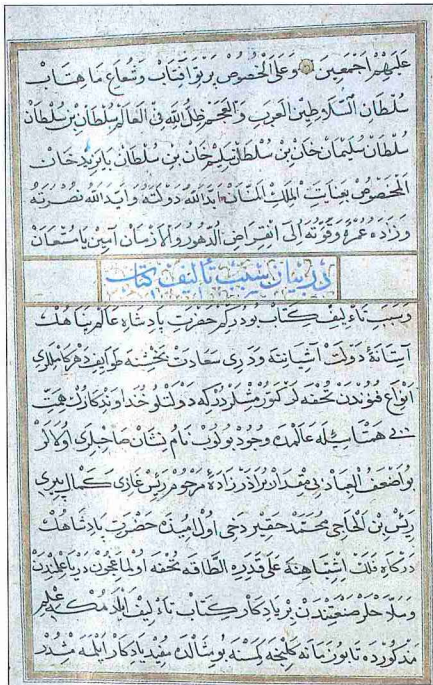 عليهم اجمعين وعلى الخصوص پرتو آفتاب وشعاع ماهتاب
سلطان السلاطين العرب والعجم ظل الله فى العالم سلطان بن سلطان
سلطان سليمان خان بن سلطان سليم خان بن سلطان بايزيد خان
المخصوص بعنايت الملك المنان ابد الله دولته وايد الله نصرته
وزاده عمره وقوته الى انقراض الدهور والازمان آمين يا مستعان
در بيان سبب تأليف كتاب
وسبب تأليف كتاب بودركم حضرت پادشاه عالم پناهك
آستانۀ دولت آشيانته ودرى سعادت بخشنه طوايف دهر كاملارى
انواع فنوندن تحفه لر كتورمشلردركه دولتلو خداوندكارك همت
بى همتاسيله عالمده وجود بولوب نام نشان صاحبلرى اولالر
بو اضعف العباد بى مقدار برادرزادۀ مرحوم رئيس غازى كمال پيرى
ريس بن الحاجى محمد حقير دخى اول اميدنه حضرت پادشاهك
درگاه فلك اشتباهنه على قدره الطاقه تحفه اولماغچون دريا علمندن
وملاحلر صنعتندن بر يادكار كتاب تأليف ايلدمكه علم
مذكورده تا بو زمانه كلنجه كمسنه بو مثالده مفيد يادكار ايلمه مشدر